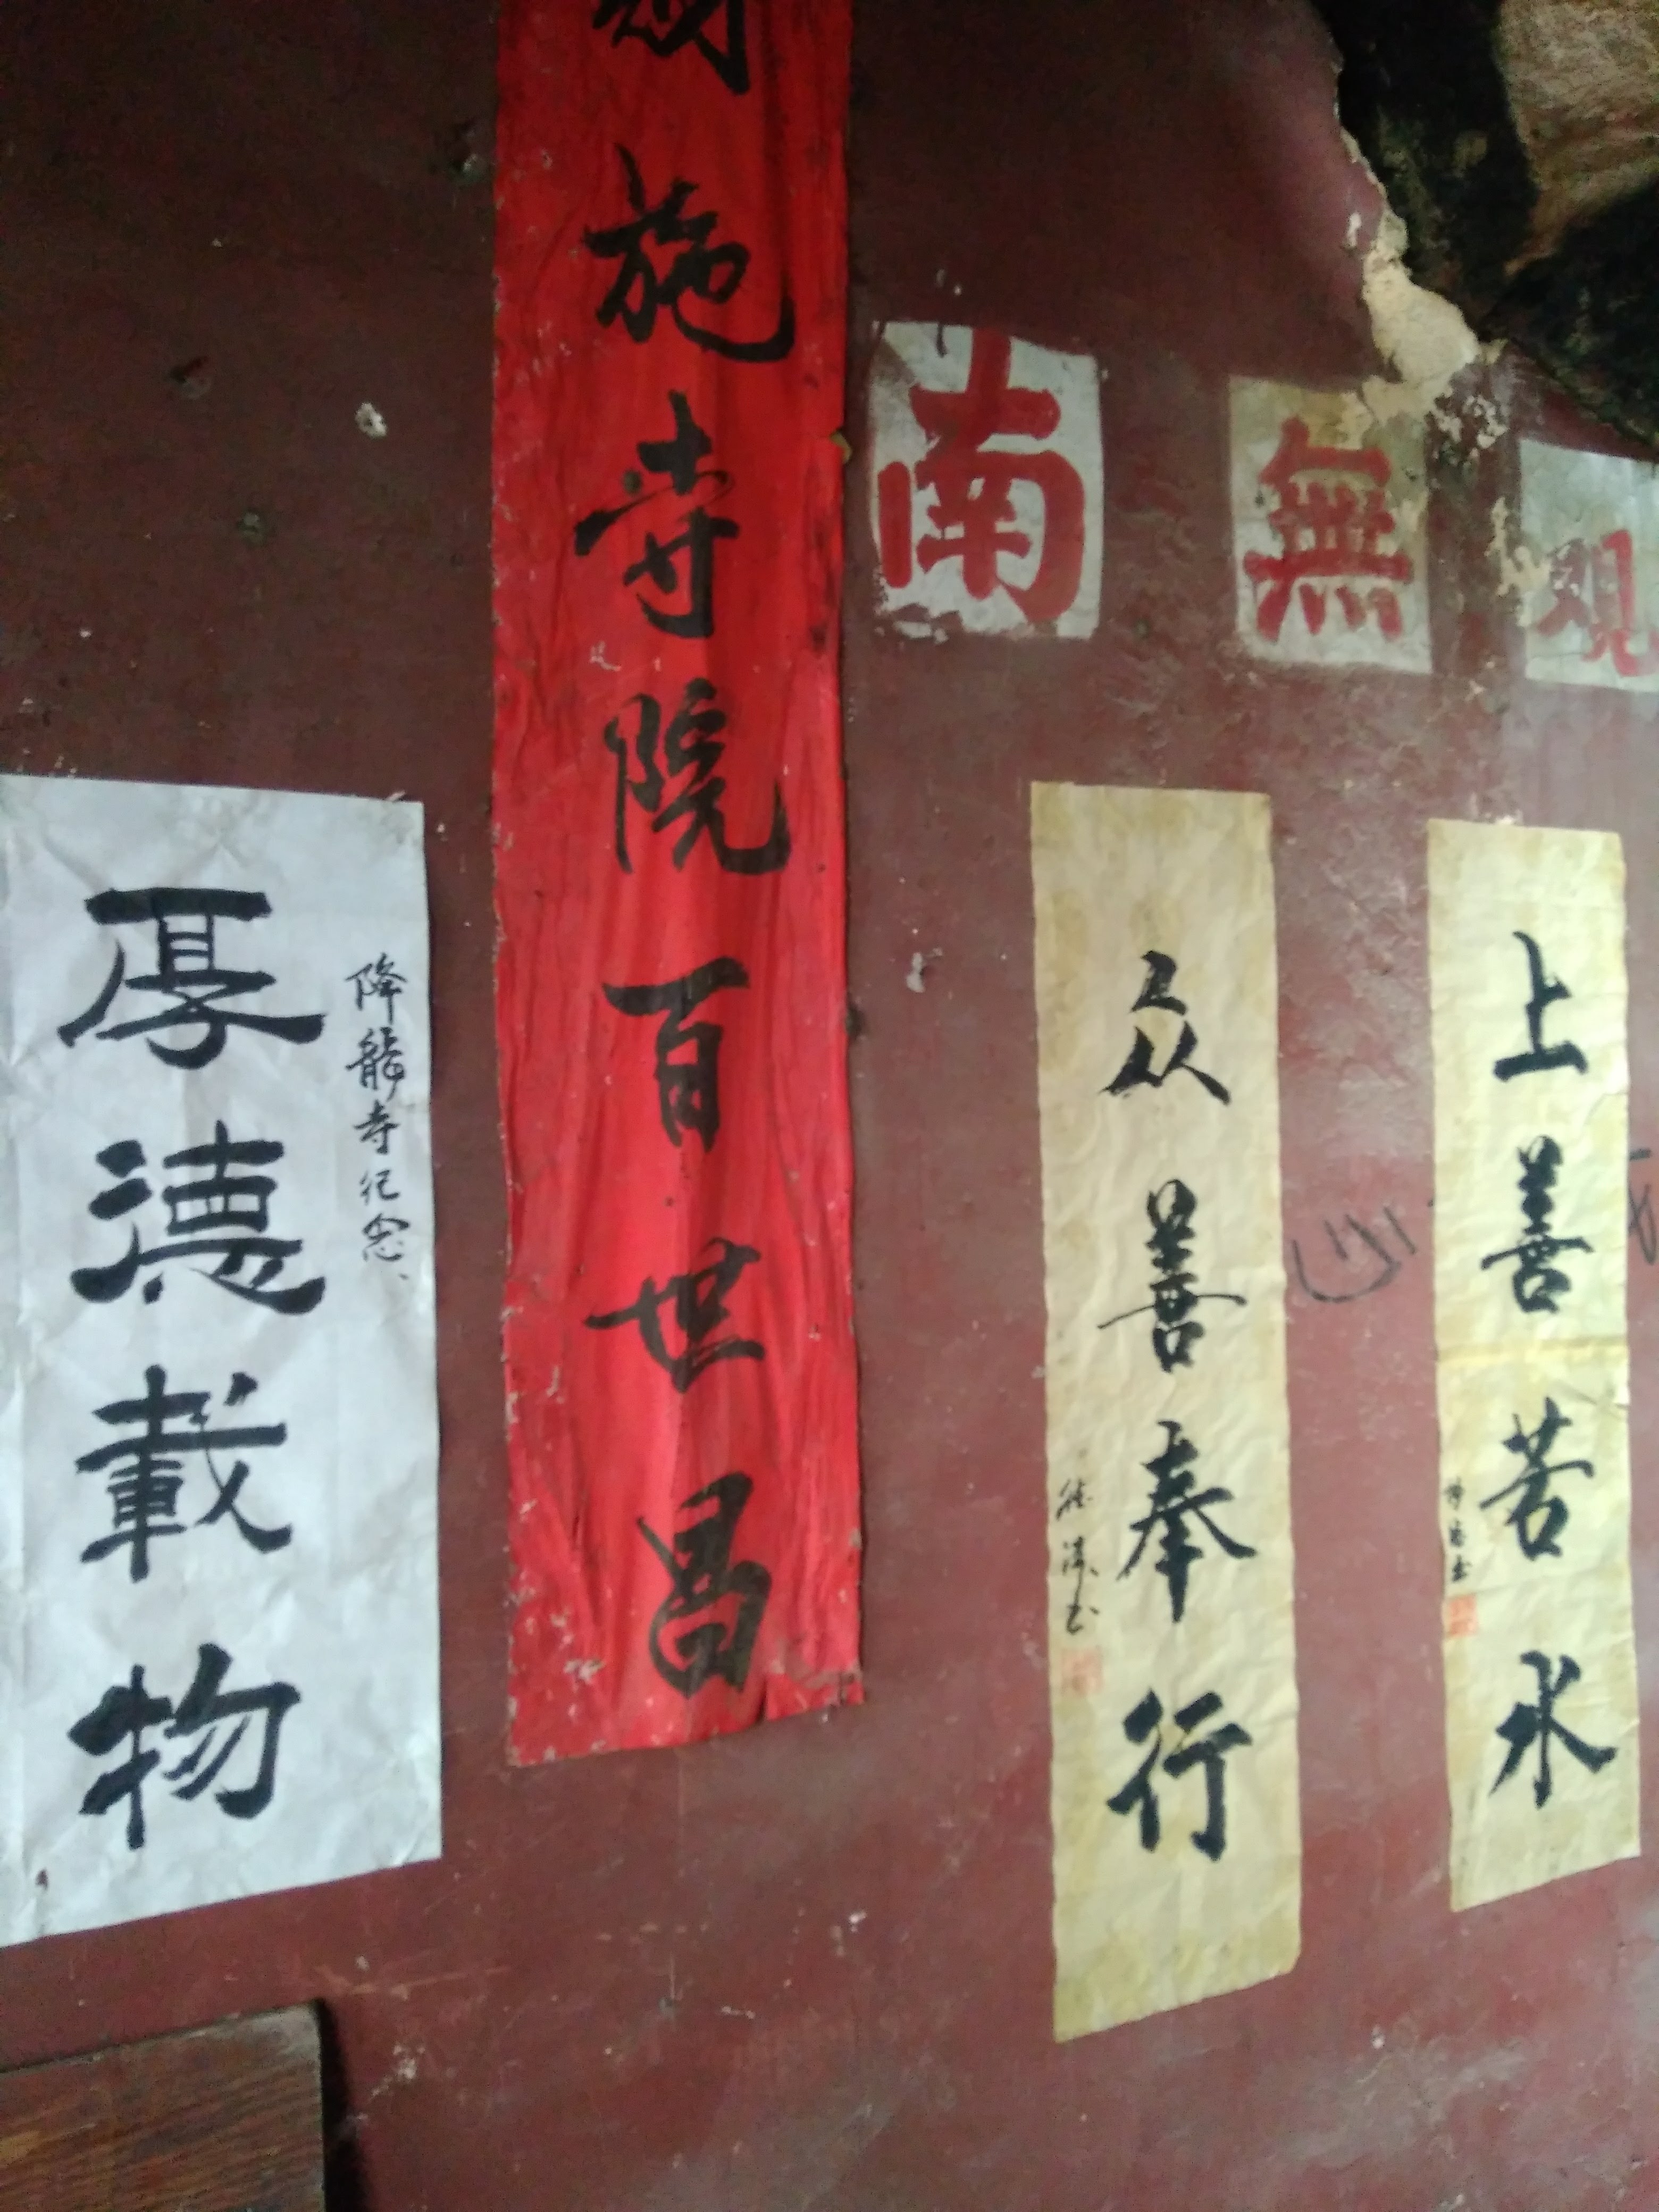 施寺院百世昌
南無观
厚德載物
降龍寺纪念
众善奉行
上善若水